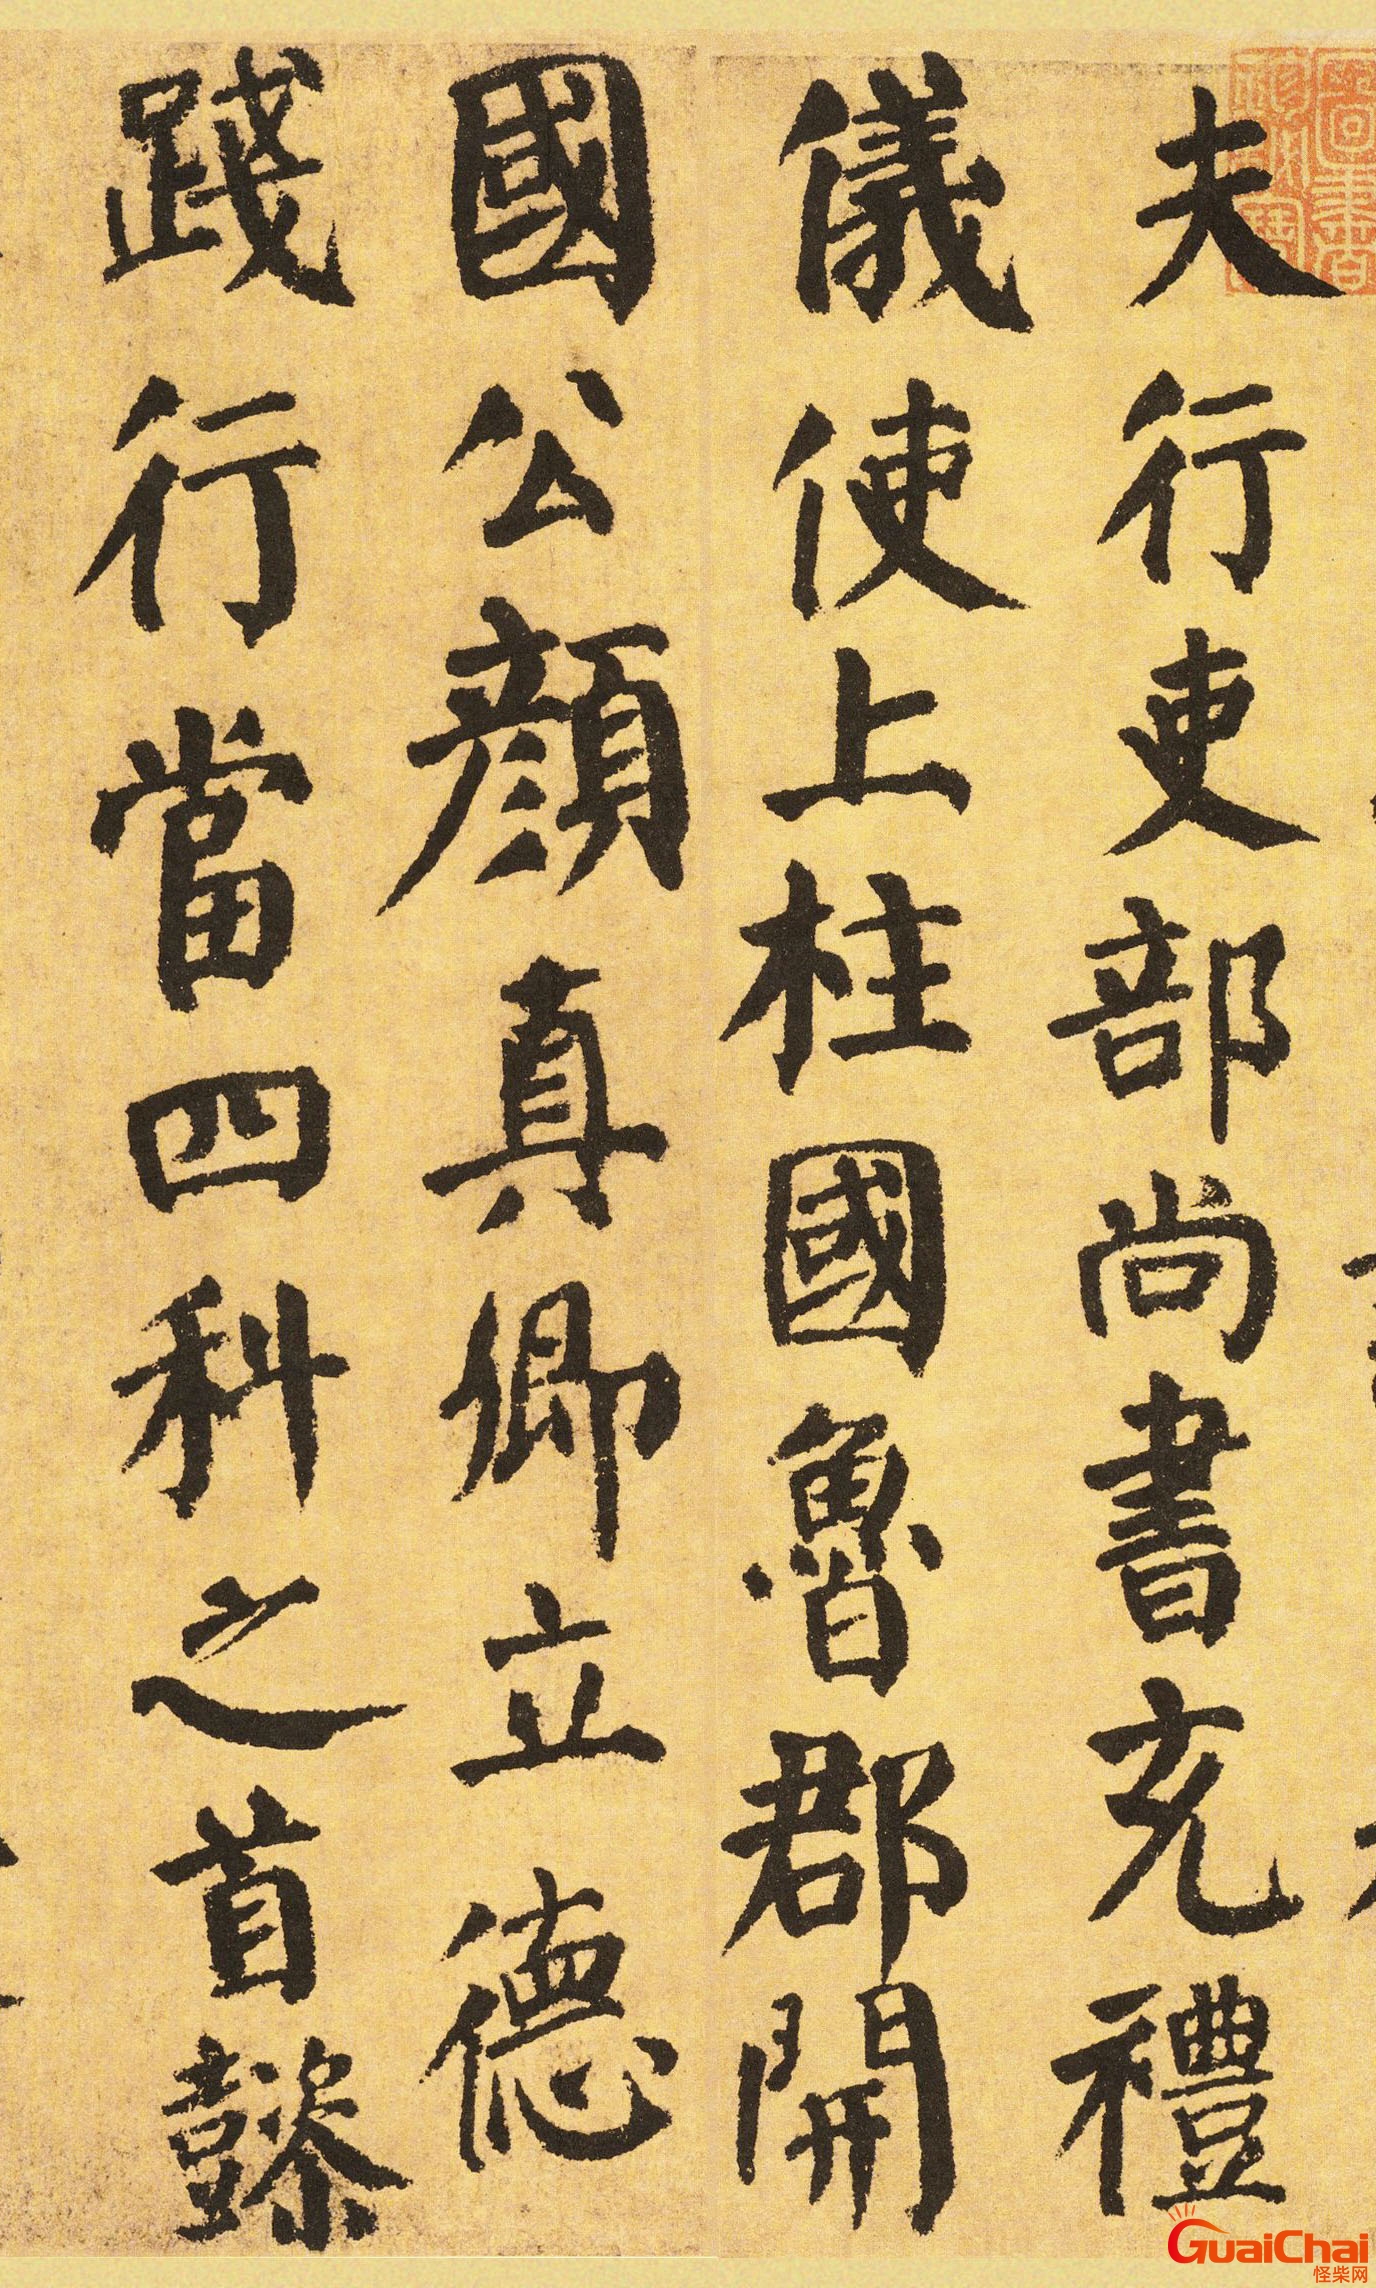 夫行吏部尚書充禮
儀使上柱國魯郡開
國公顏真卿立德
踐行當四科之首懿
GuaiChai
怪柴网